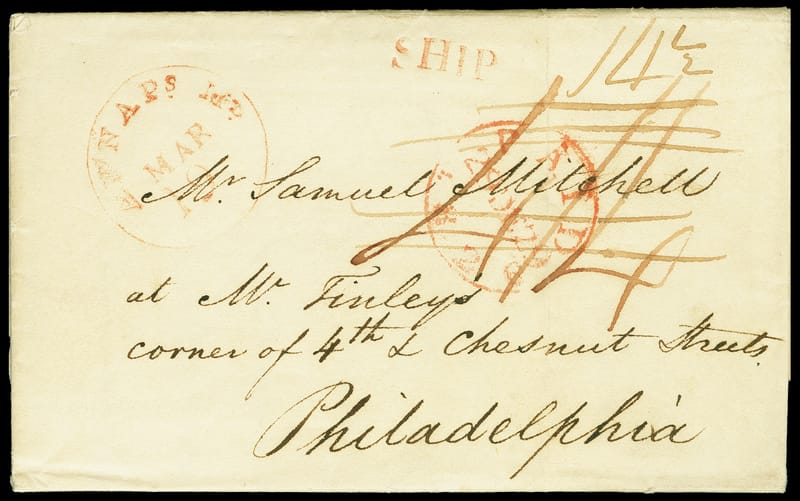 SHIP
14 1/2
ANNAPS MD
MAR
20
PAID
Mr. Samuel Mitchell
at Mr. Finley's
corner of 4th & Chesnut Streets.
Philadelphia